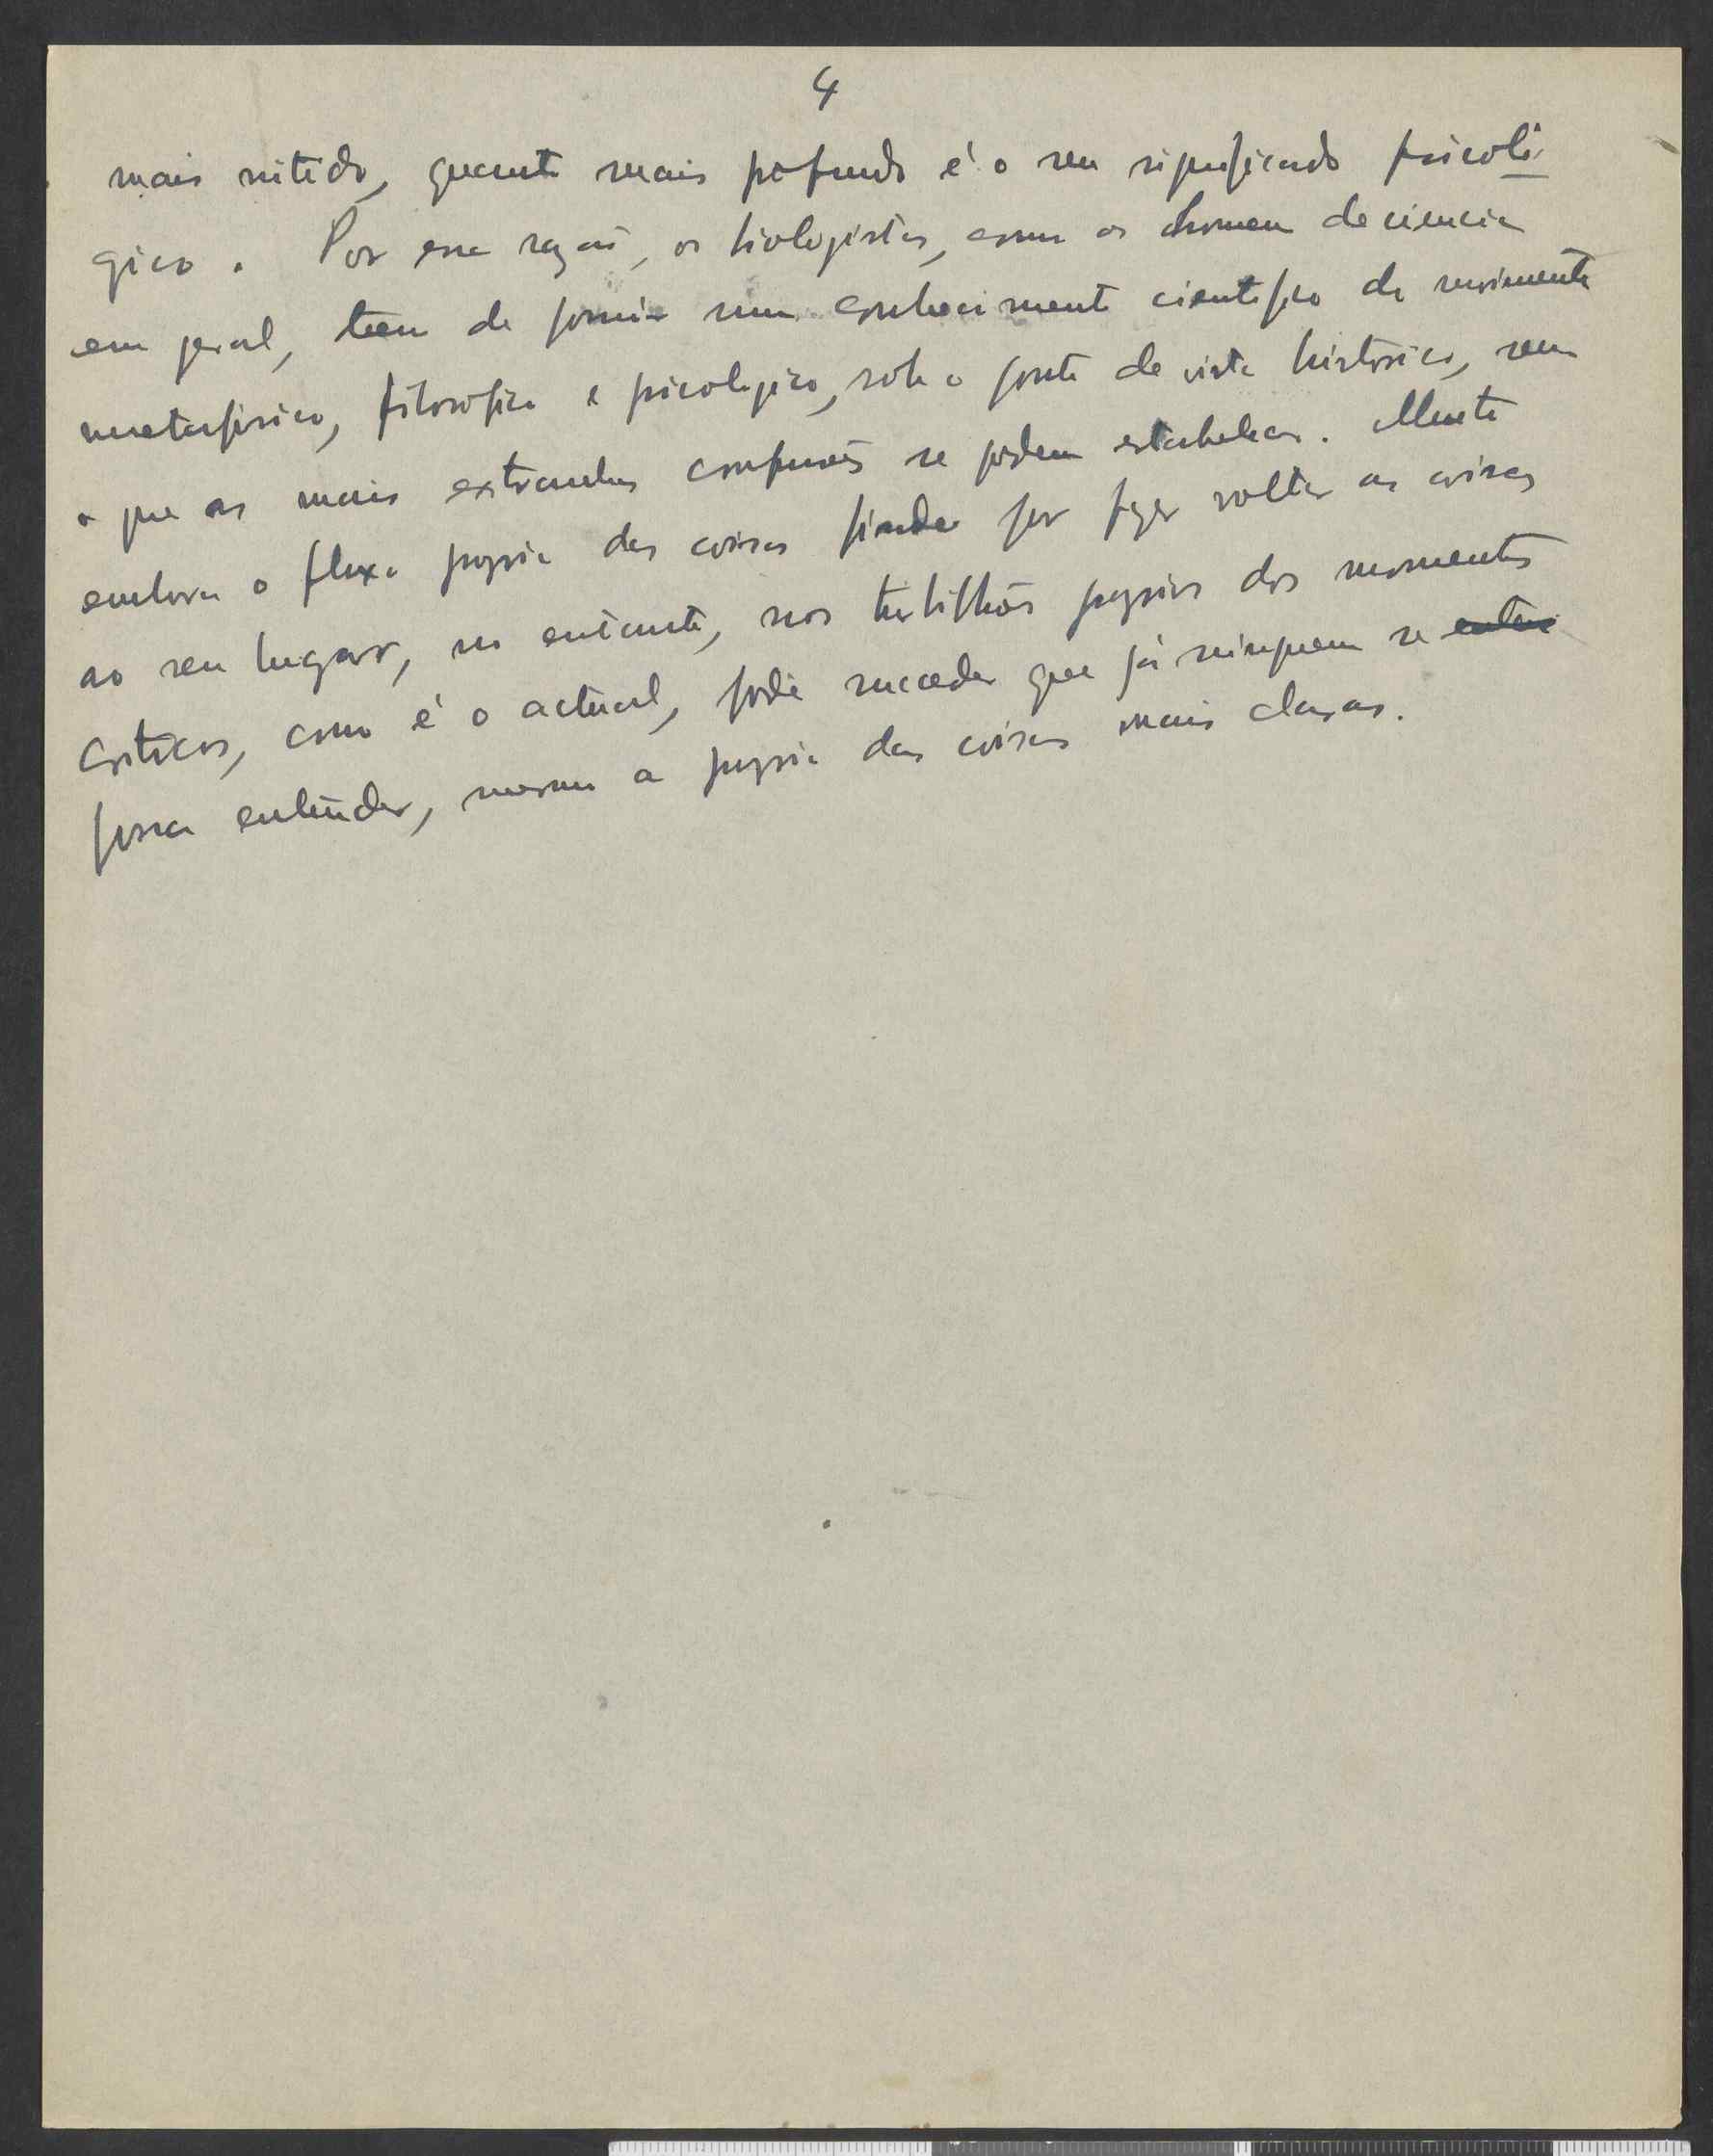 4
mais nitido, quanto mais profundo é o seu significado psicoló-
gico. Por essa razão, os biologistas, como os homem de ciencia
em geral, têem de possuir um conhecimento cientifico do movimento
metafisico, filosofico e psicologico, sob o ponto de vista historico, sem
o que as mais extranhas confusões se podem estabelecer. Muito
embora o fluxo proprio das coisas finde por fazer voltar as coisas
ao seu lugar, no entanto, nos turbilhões proprios dos momentos
criticos, como é o actual, pode suceder que já ninguem se enten
possa entender, mesmo a proprio das coisas mais claras.